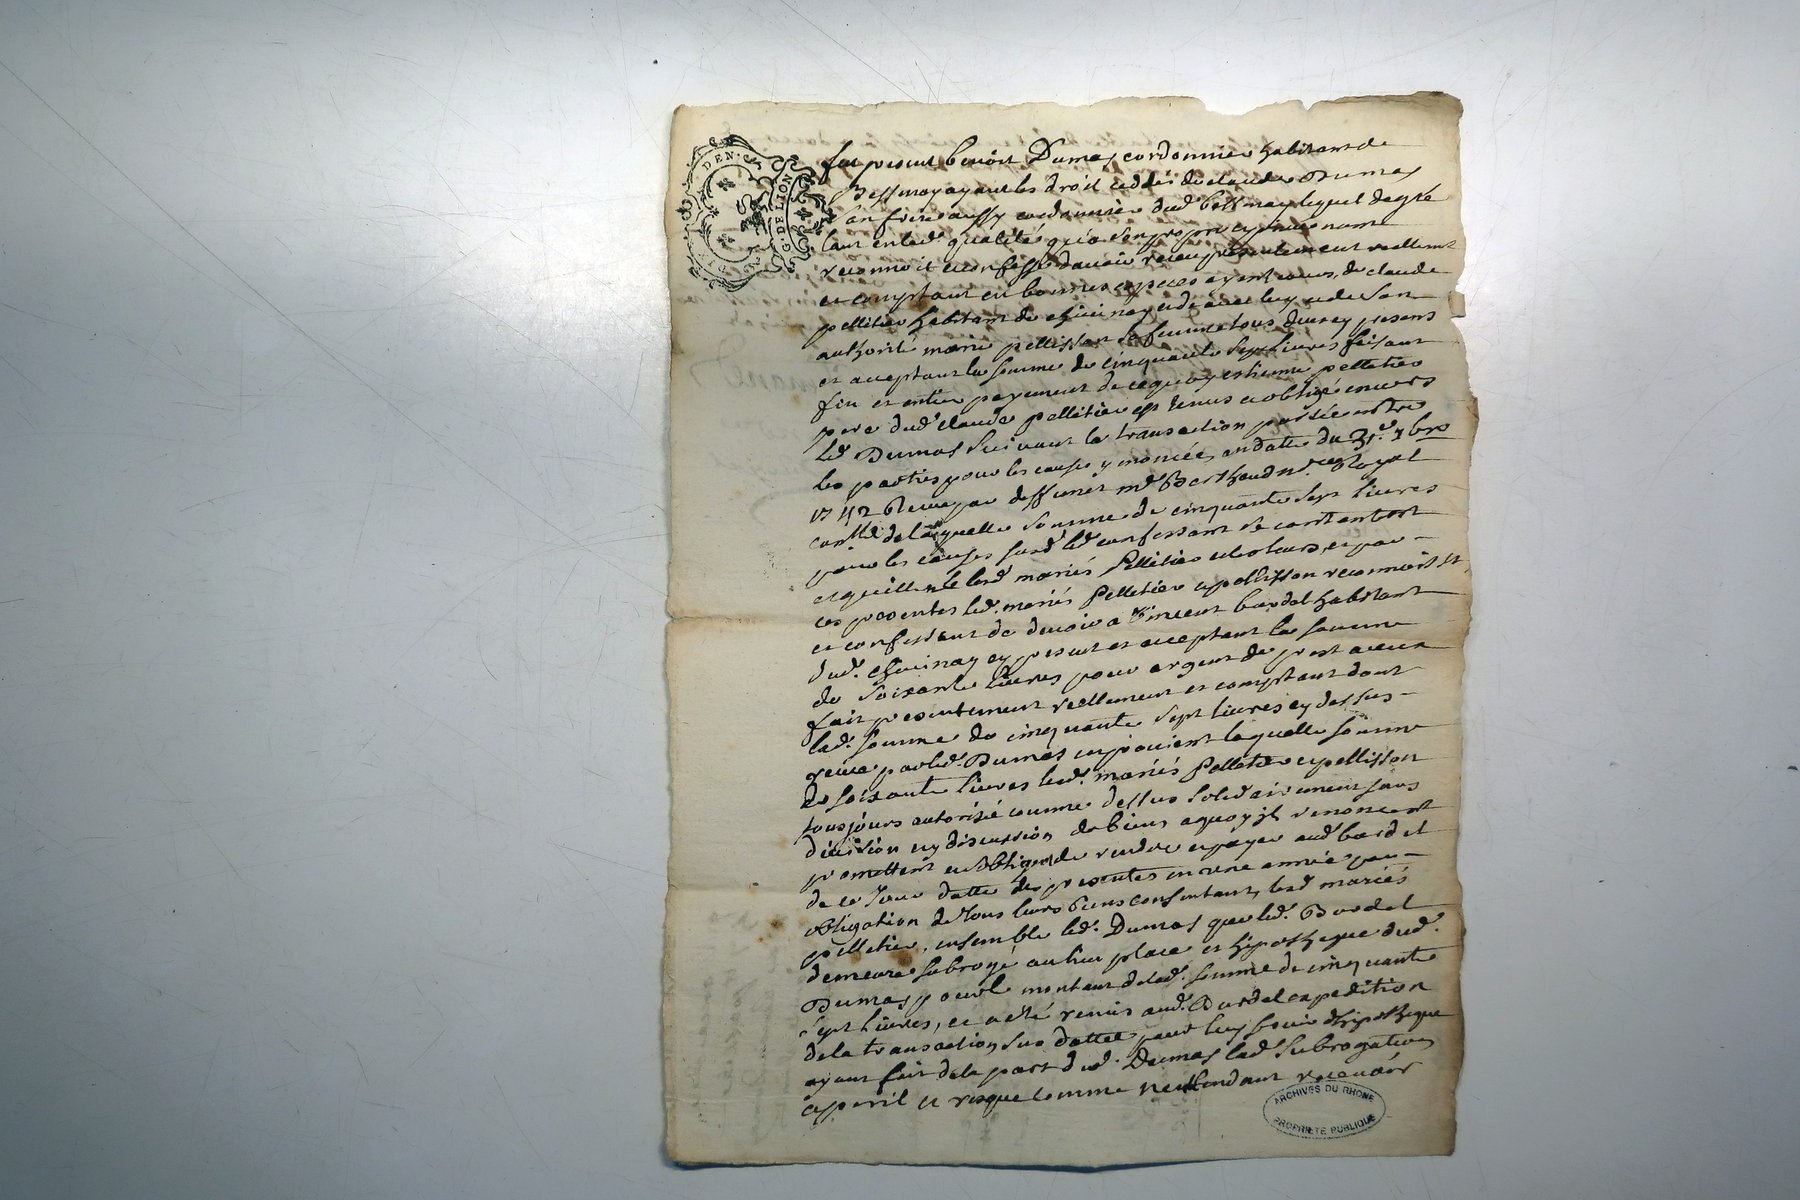 DEN.
G. DE LION
S
fut present benoist Dumas cordonnier habitant de
Bessenay ayant les droit ceddés de claude Dumas
son frere aussy cordonnier dud bessenay lequel degré
tant en lad. qualité qu'a son propre et privé nom
reconnoit et confesse d'avoir receu presentement reellement
et comptant en bonnes especes ayant cours, de claude
pelletier habitant de chevinay et de avec luy et de son
authorité marie pellisson sa femme tous deux cy presens
et acceptant la somme de cinquante sept livres faisant
fin et entier payement de ce quoy estienne pelletier
pere dud claude pelletier est tenus et obligé envers
led Dumas suivant la transaction passée entre
les parties pour les causes y moncées en datte du 3e. 7bre
1742 receue par deffunct me Berthaud no.re Royal
conlle de laquelle somme de cinquante sept livres
pour les causes susd led confessant se contentent
et quitte led mariés Pelletier et les leurs, et par
ces presentes led. mariés Pelletier et pellisson reconnoist
et confessent de devoir a Vincent bardel habitant
dud. chevinay cy present et acceptant la somme
de soixante livres pour argent de prest a eux
fait presentement reellement et comptant dont
lad. somme de cinquante sept livres cy dessus
receue par led. Dumas en provient laquelle somme
de soixante livres led. mariés Pelletier et pellisson
tousjours autorisée comme dessus solidairement sans
division ny discussion de biens a quoy ils renoncent
promettent et s'obligent de rendre et payer aud bardel
de ce Jour datte des presentes en une année par
obligation de tous leurs biens consentant, led mariés
pelletier. ensemble led. Dumas que led. Bardel
demeure subrogé au lieu place et hipotheque dud.
Dumas pour le montant de lad. somme de cinquante
sept livres, et a été remis aud. Bardel expedition
de la transaction sus dattée pour luy servir d'hipotheque
ayant fait de la part dud. Dumas lad subrogation
a peril et risque comme n'entendant recevoir
ARCHIVES DU RHONE
PROPRIÉTÉ PUBLIQUE